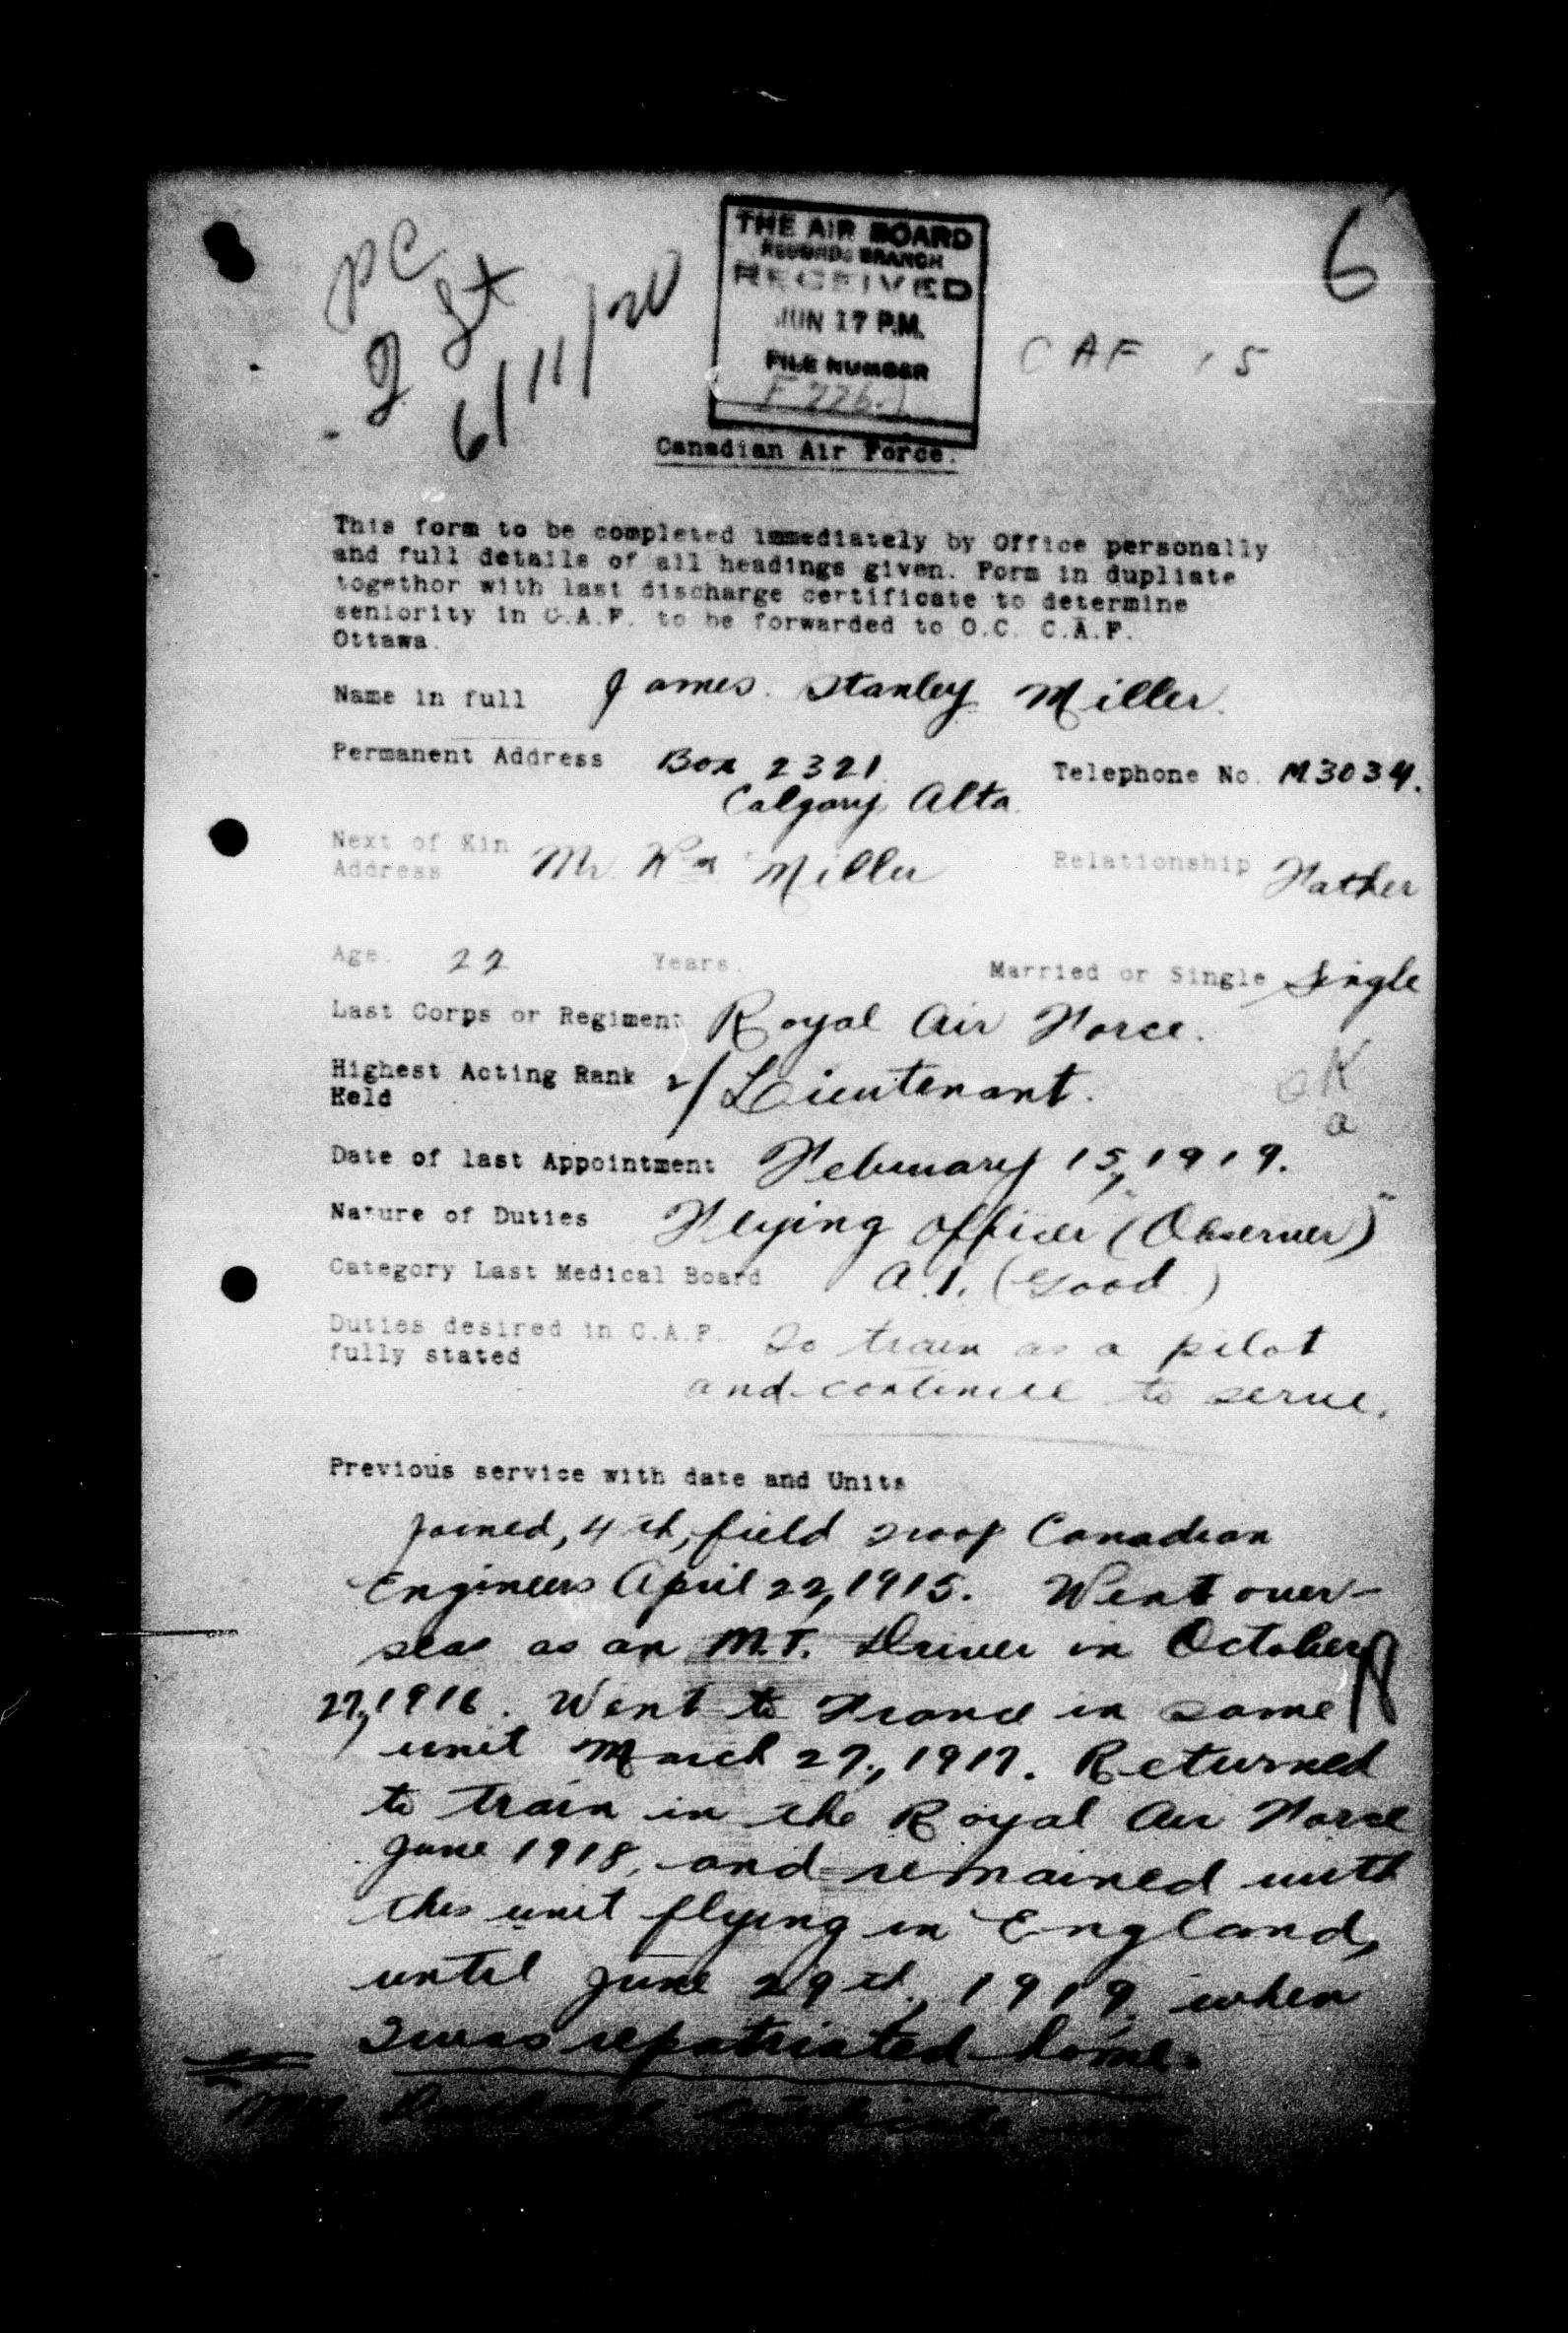 6
THE AIR BOARD
RECORDS BRANCH
RECEIVED
JUN 17 P.M.
FILE NUMBER
PC
6/11/20
CAF 15
Canadian Air Force.
This form to be completed immediately by Office personally
and full details of all headings given. Form in dupliate
togethor with last discharge certificate to determine
seniority in C.A.F. to be forwarded to O.C. C.A.F.
Ottawa.
Name in full James. Stanley Miller.
Permanent Address Box 2321 Telephone No. M3034.
Calgary, Alta.
Next of Kin
Address Mr. Wm Miller Relationship Father
Age. 22 Years. Married or Single Single
Last Corps or Regiment Royal Air Force.
Highest Acting Rank
Held 2/Lieutenant.
OK
a
Date of last Appointment February 15, 1919.
Nature of Duties Flying Officer (Observer)
Category Last Medical Board A.1. (Good)
Duties desired in C.A.F.
fully stated To train as a pilot
and continue to serve.
Previous service with date and Units
Joined, 4th, field Troop Canadian
Engineers April 22, 1915. Went over-
seas as an M.T. Driver in October
27, 1916. Went to France in same
unit March 27., 1917. Returned
to train in the Royal Air Force
June 1918, and remained with
this unit flying in England,
until June 29th, 1919, when
I was repatriated home.
My Discharge Certificate